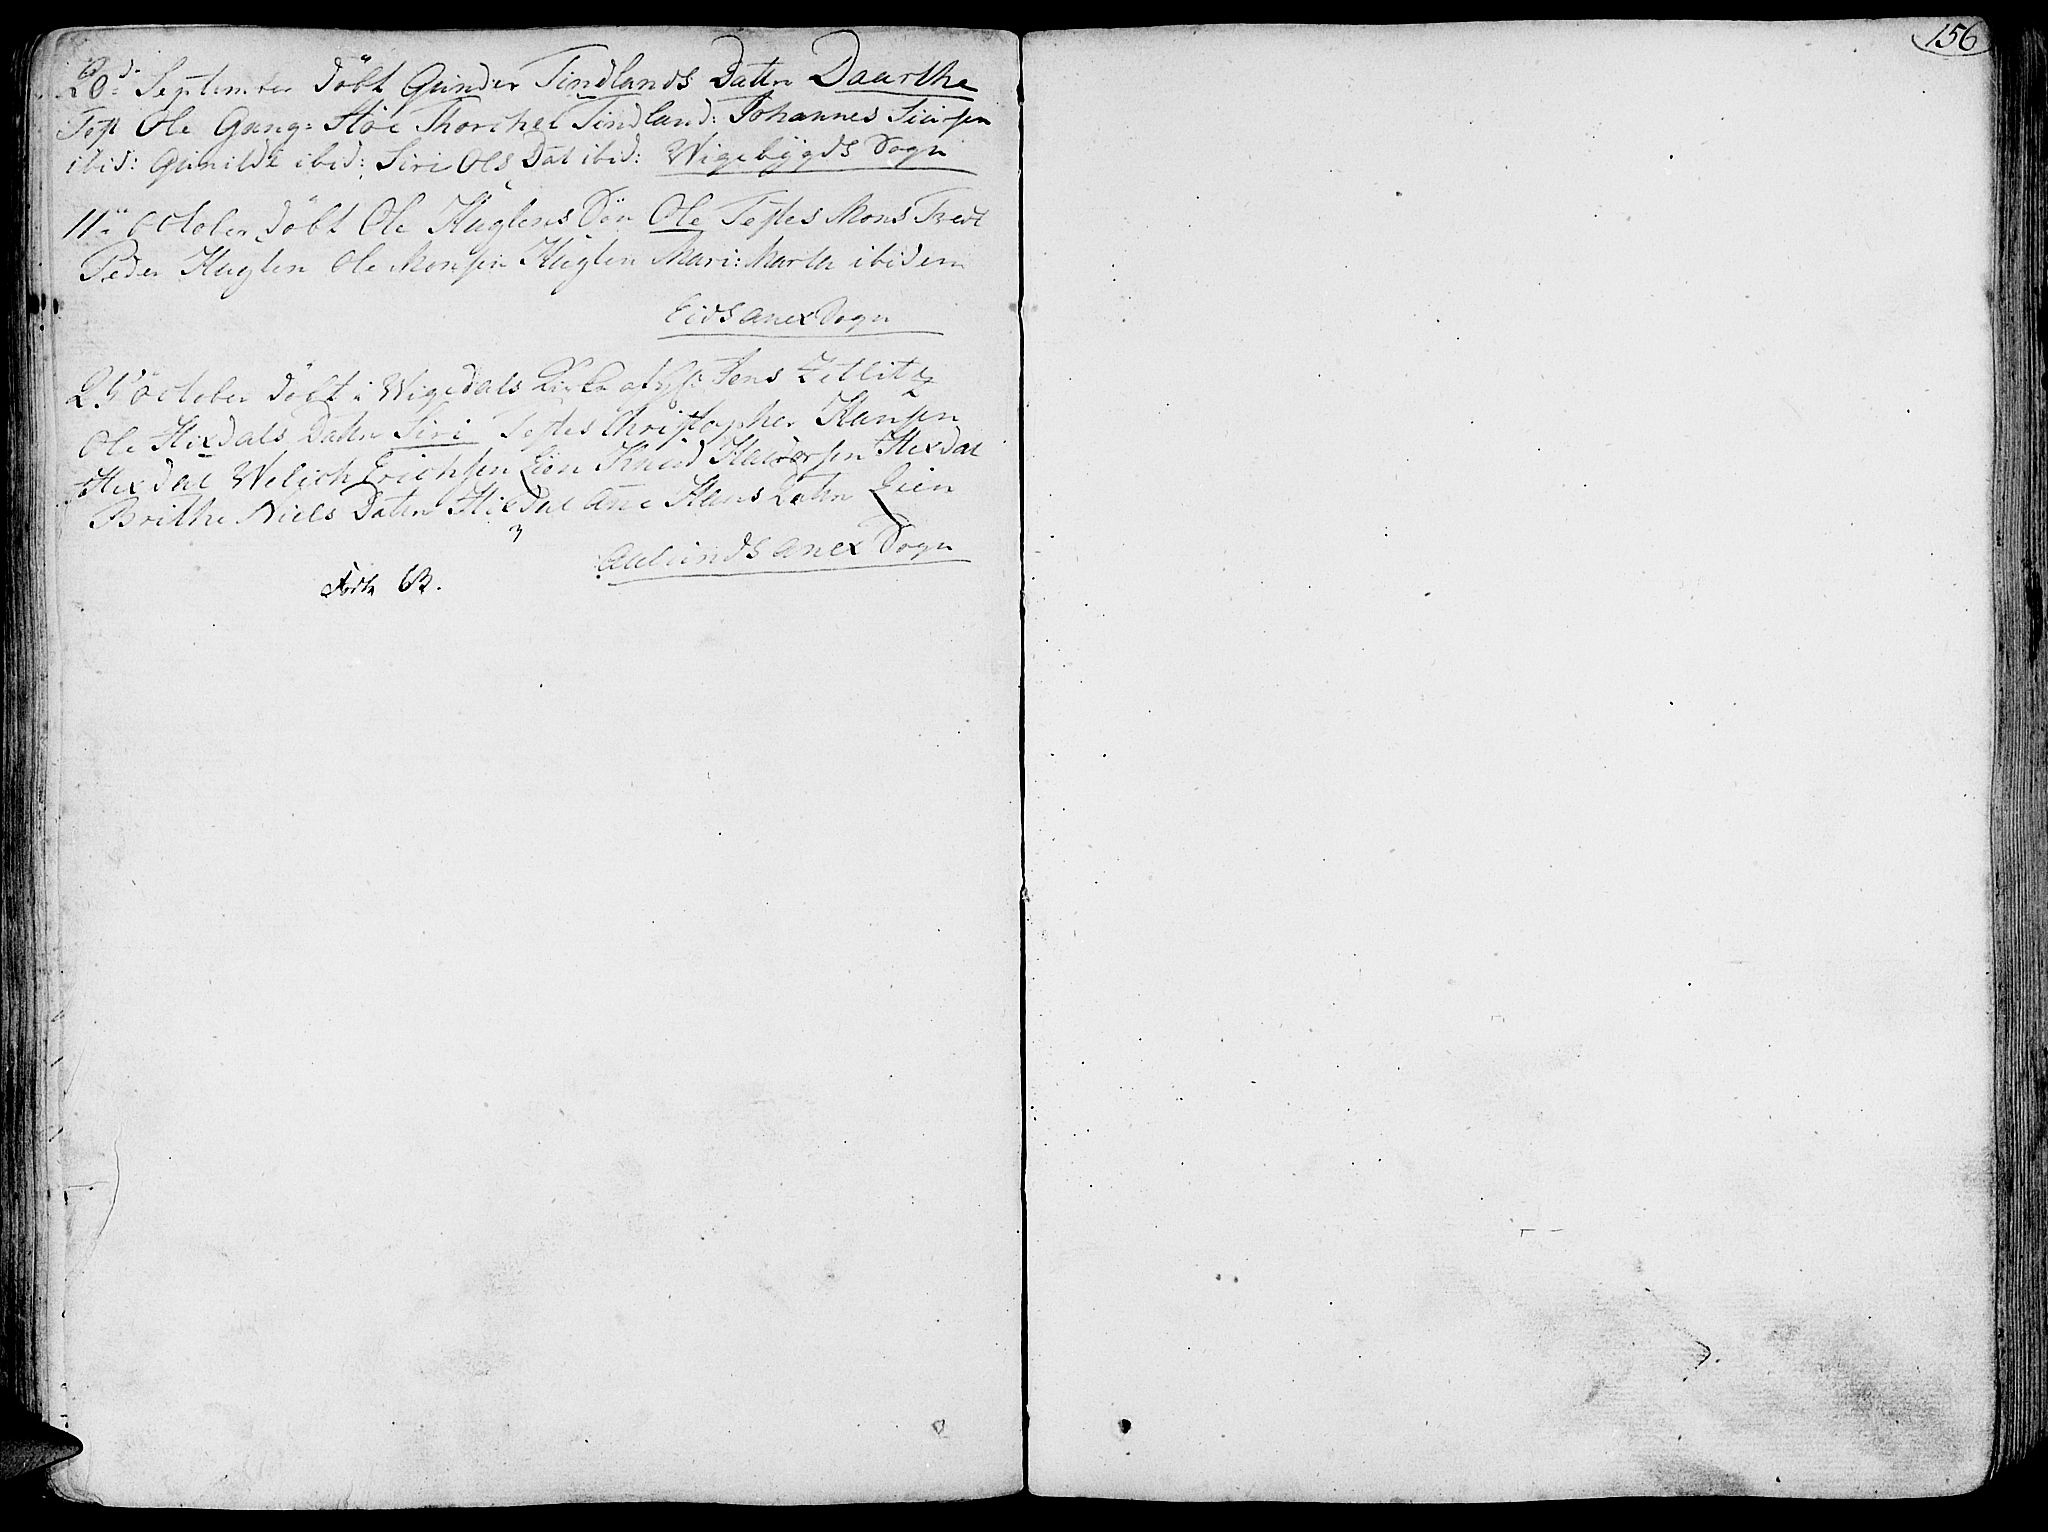 156
20d September döbt Gunder Tindlands Datter Daarthe
Test Ole Gung= Støe Thorchel Tindland: Johannes Siursen
ibid: Gunilde ibid: Siri Ols Dat ibid: Wigebÿgds Sogn
11te October döbt Ole Huglens Søn Ole Testes Mons Tvedt
Peder Huglen Ole Monsen Huglen Mari: Marta ibidem
Eids anex Sogn
25 October döbt i Wigedals Kirke af Jens Zetlitz
Ole Hixdals Datter Siri Testes Christopher Hansen
Hixdal Welich Erichsen Lien Knud Halvorsen Hixdal
Brithe Niels Datter Hixdal Ane Hans Datter Lien
Aalunds anex Sogn